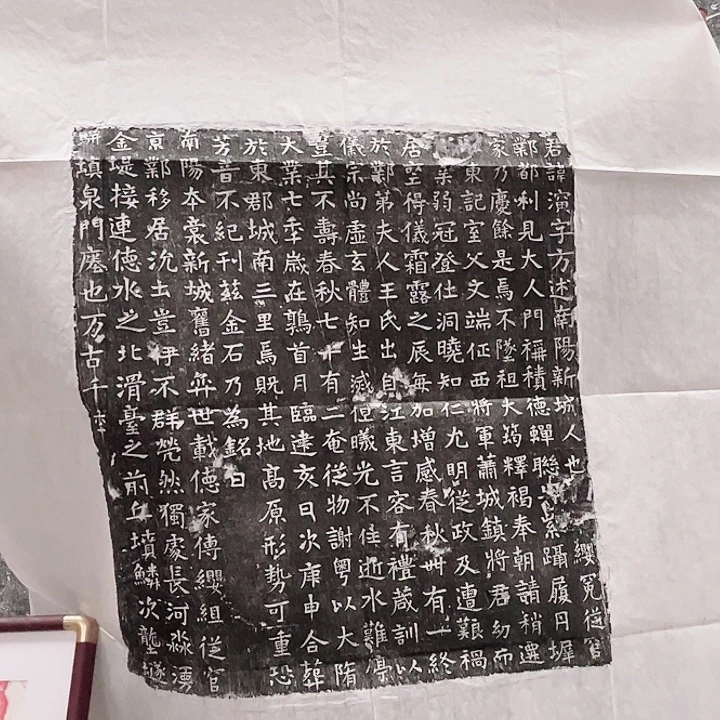 君諱演字方述南陽新城人也纓冕從官
鄴都利見大人門稱積德蟬聯紫躡履丹墀
家乃慶餘是焉不墜祖大釋褐奉朝請稍遷
東記室父文端征西將軍蕭城鎮將君幼而
業弱冠登仕洞曉知仁允明從政及遭艱禍
居堊得儀霜露之辰每加增感春秋卌有一終
於鄴第夫人王氏出自江東言容有禮葴訓以
儀宗尚虛玄體知生滅曦光不住逝水難停
豈其不壽春秋七十有二奄從物謝粵以大隋
大業七年歲在鶉首月臨建亥日次庚申合葬
於東郡城南三里焉既其地高原形勢可重恐
芳音不紀刊茲金石乃為銘曰
南陽本裳新城舊緒弈世載德家傳纓組從官
京鄴移居沇土豈伊不群煢然獨處長河淼湧
金堤接連德水之北滑臺之前丘墳鱗次壟隧
駢填泉門塵也万古千